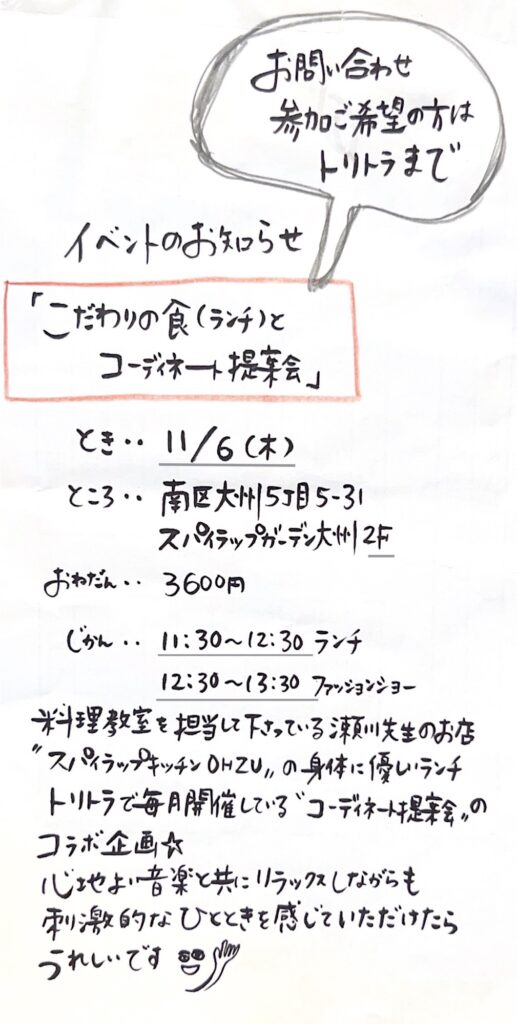 お問い合わせ
参加ご希望の方は
トリトラまで
イベントのお知らせ
「こだわりの食(ランチ)と
コーディネート提案会」
とき‥ 11/6(木)
ところ‥ 南区大州5丁目5-31
スパイラップガーデン大州2F
おねだん‥ 3600円
じかん‥ 11:30〜12:30 ランチ
12:30〜13:30 ファッションショー
料理教室を担当して下さっている瀬川先生のお店
〝スパイラップキッチンOHZU〟の身体に優しいランチ
トリトラで毎月開催している〝コーディネート提案会〟の
コラボ企画☆
心地よい音楽と共にリラックスしながらも
刺激的なひとときを感じていただけたら
うれしいです